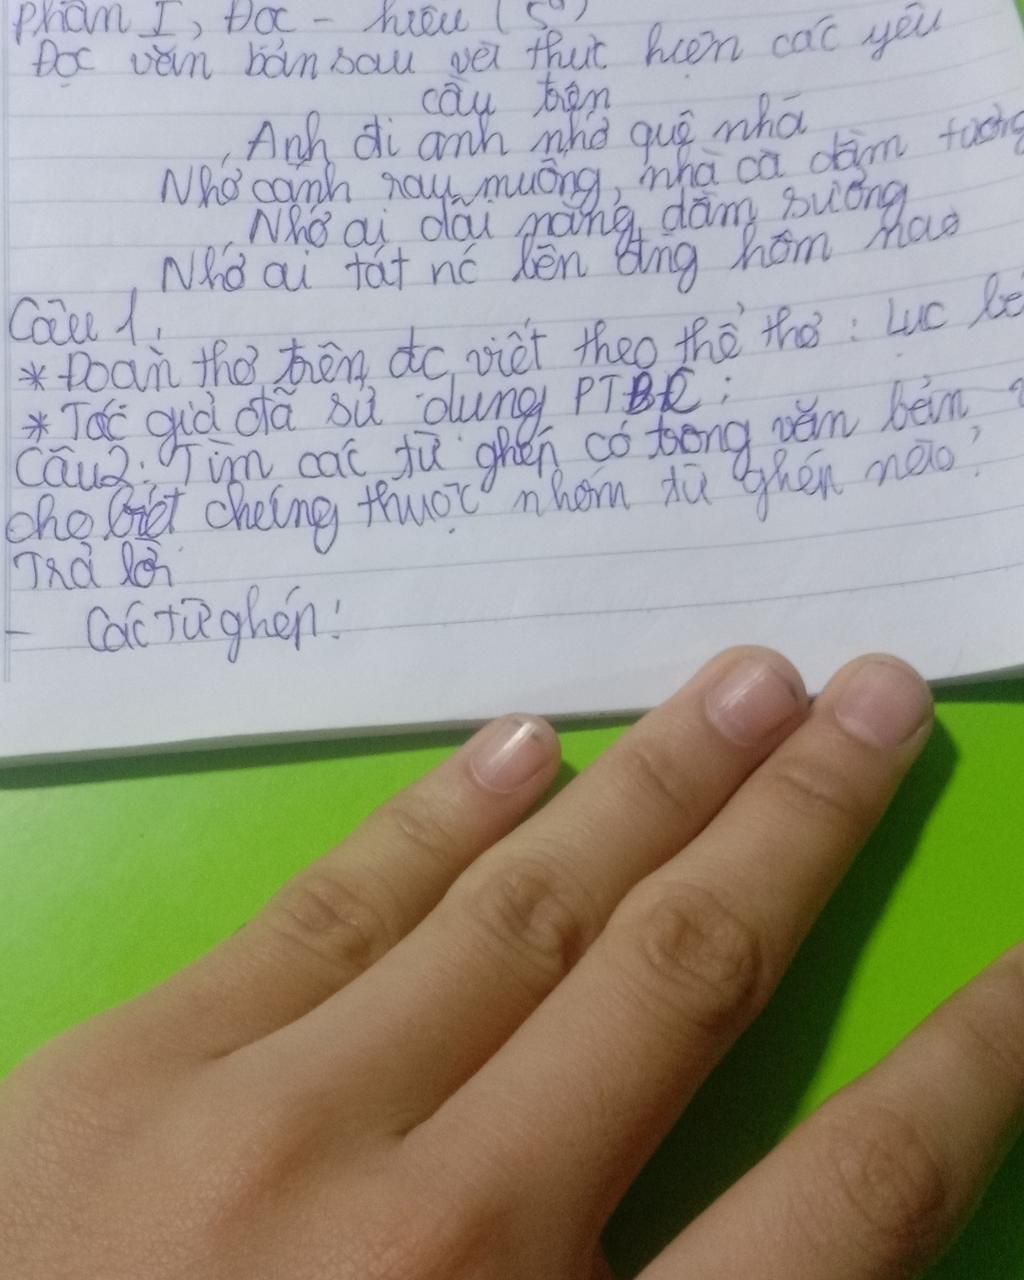 Phần I, Đọc - hiểu (5đ)
Đọc văn bản sau và thực hiện các yêu
cầu trên
Anh đi anh nhớ quê nhà
Nhớ canh rau muống, nhà cà dầm tương
Nhớ ai dãi nắng, dầm sương
Nhớ ai tát nước bên đàng hôm nao
Câu 1,
* Đoạn thơ trên đc viết theo thể thơ: Lục
* Tác giả đã sử dụng PTBĐ:
Câu 2: Tìm các từ ghép có trong văn bản
cho biết chúng thuộc nhóm từ ghép nào?
Trả lời
- Các từ ghép: